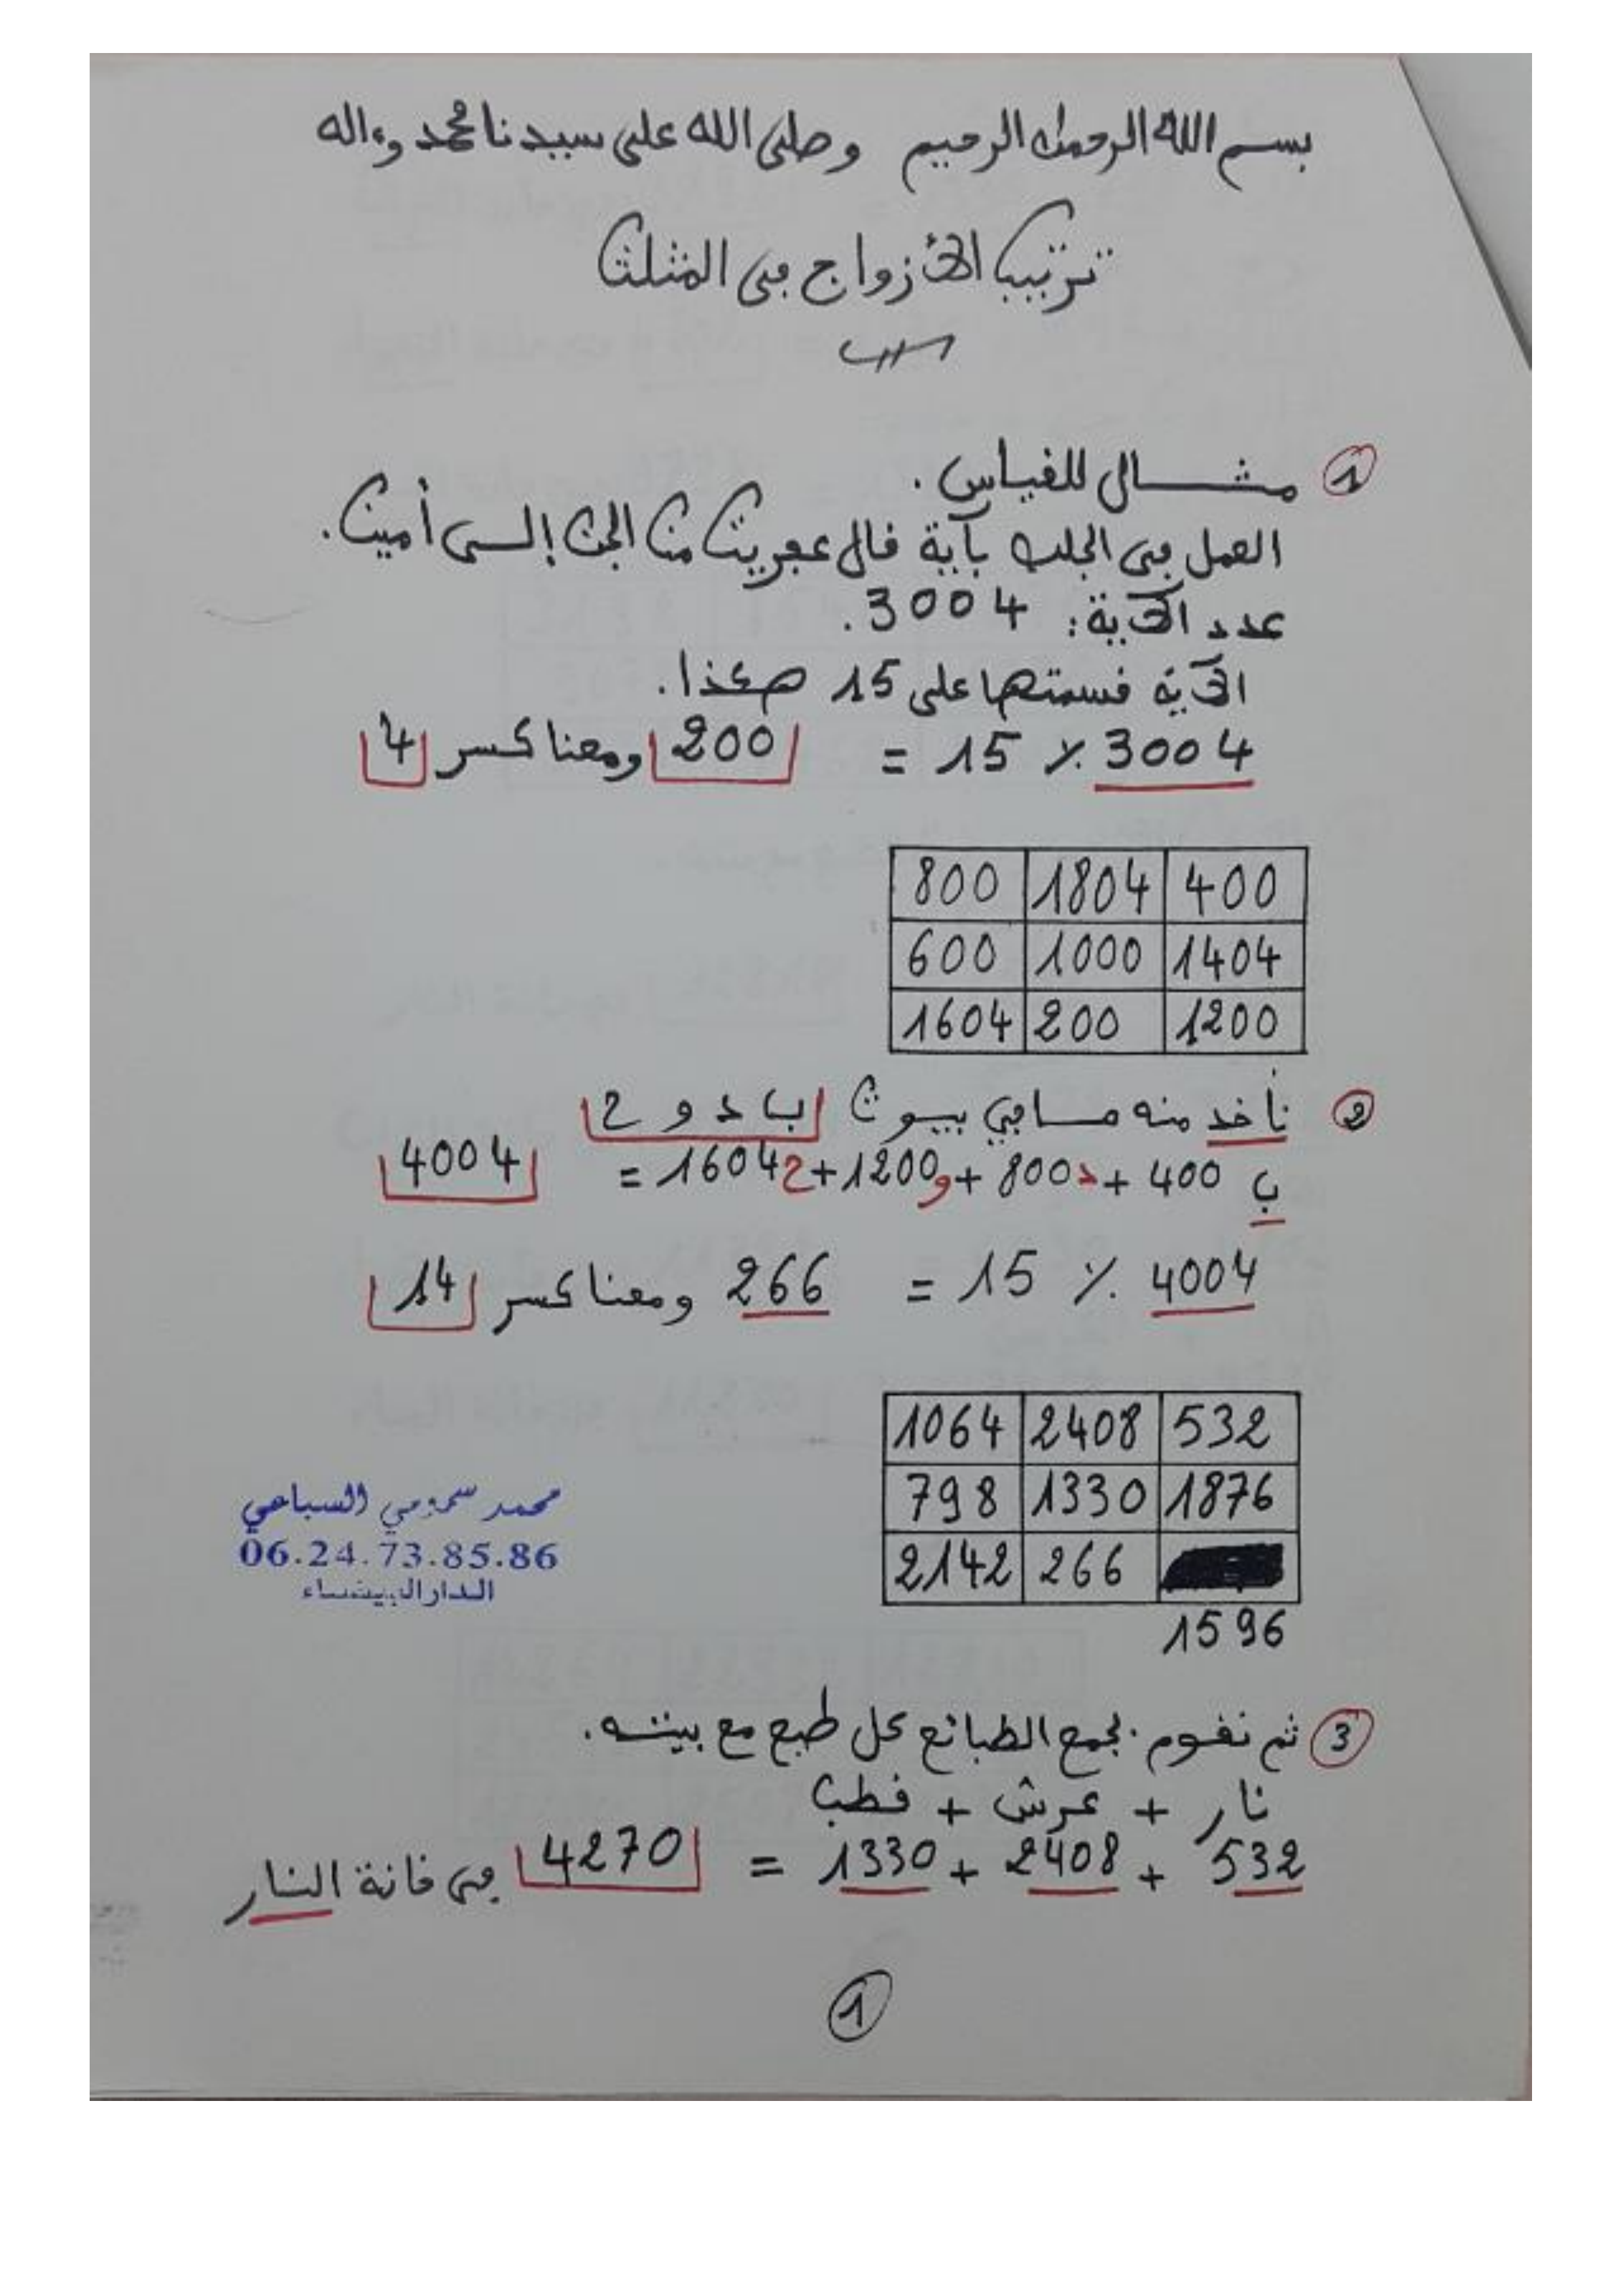 بسم الله الرحمن الرحيم وصلى الله على سيدنا محمد وءاله
ترتيب الأزواج في المثلث
1 مثال للقياس.
العمل في الجلب بآية قال عفريت من الجن إلى أمين.
عدد الآية: 3004.
الآية قسمتها على 15 هكذا.
3004 ٪ 15 = 200 ومعنا كسر 4
800 1804 400
600 1000 1404
1604 200 1200
2 نأخد منه ما في بيوت ب د و ح
ب 400 + 800د + 1200و + 1604ح = 4004
4004 ٪ 15 = 266 ومعنا كسر 14
1064 2408 532
798 1330 1876
2142 266
1596
محمد سمومي السباعي
06.24.73.85.86
الدار البيضاء
3 ثم نقوم بجمع الطبائع كل طبع مع بيته.
نار + عرش + قطب
532 + 2408 + 1330 = 4270 في خانة النار
1